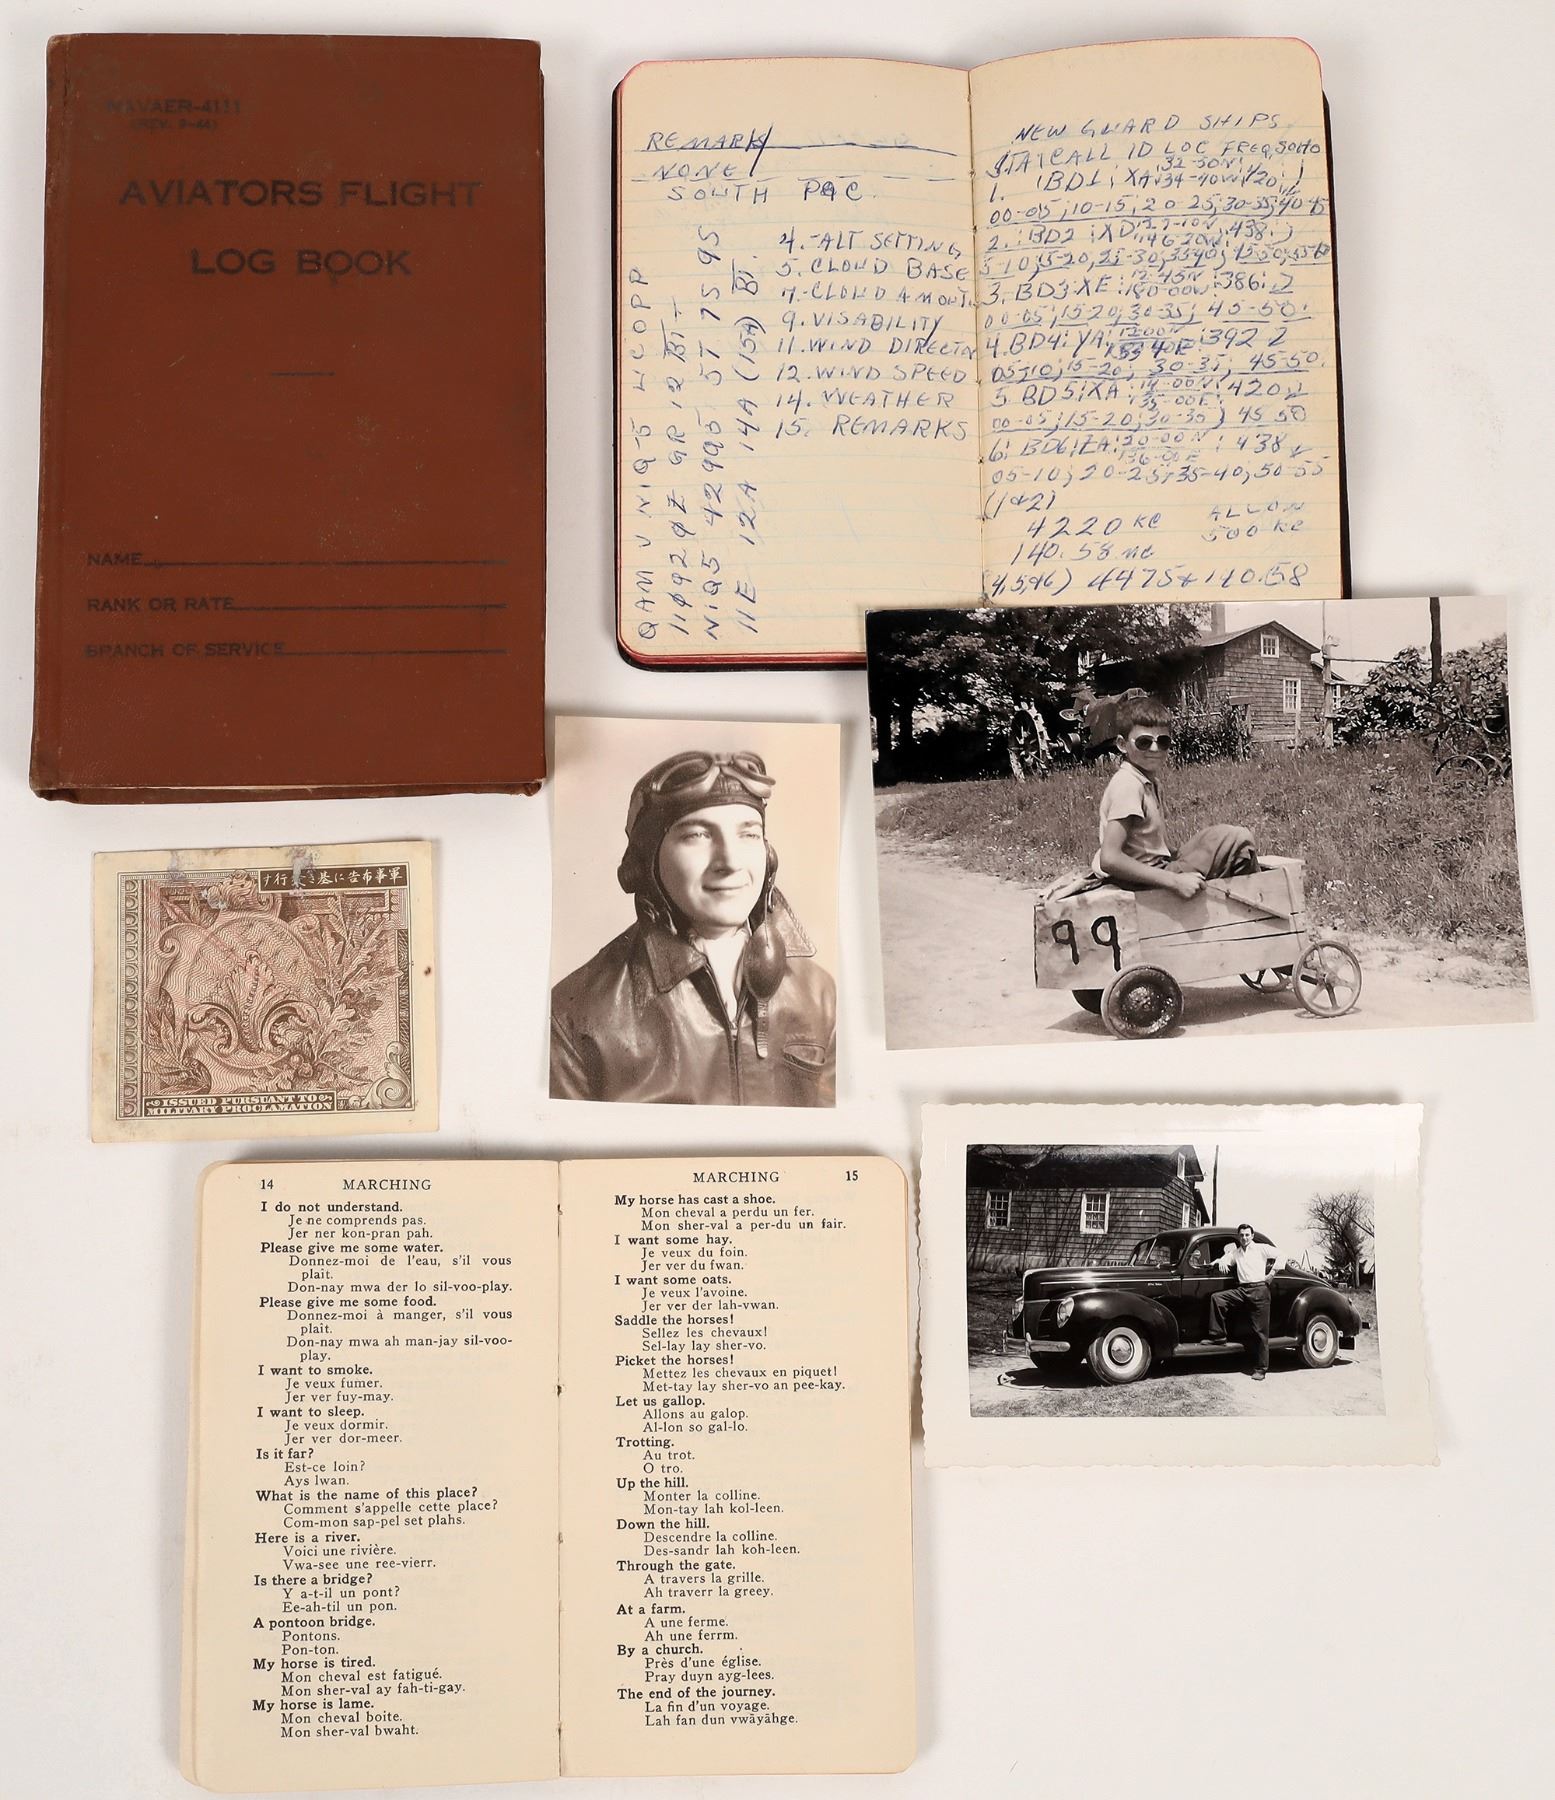 NAVAER-4111
(REV. 9-44)
AVIATORS FLIGHT
LOG BOOK
NAME
RANK OR RATE
BRANCH OF SERVICE
REMARK
NONE
SOUTH PAC.
4.-ALT SETTING
5. CLOUD BASE
7.-CLOUD AMOUNT
9. VISABILITY
11. WIND DIRECTN
12. WIND SPEED
14. WEATHER
15. REMARKS
QAM V NIQ-5
NIQ5 42995 57 75 95
11E 12A 14A (15A) BT.
NEW GUARD SHIPS
STA CALL ID LOC FREQ
1. BD1; XA
00-05; 10-15; 20-25; 30-35; 40-45
2. BD2 XD 438
5-10; 15-20; 25-30; 35-40; 45-50; 55-60
3. BD3: XE 12-45N 180-00W 386
00-05; 15-20; 30-35; 45-50
4. BD4: YA 392
05-10; 15-20; 30-35; 45-50.
5. BD5: XA 420
00-05; 15-20; 30-35; 45 50
6: BD6: ZA: 20-00N 136-00E : 438
05-10; 20-25; 35-40; 50-55
(1&2)
4220 KC ALL ON
140.58 MC 500 KC
(4,5,&6) 4475 & 140.58
99
軍事布告に基き發行す
ISSUED PURSUANT TO
MILITARY PROCLAMATION
14 MARCHING
I do not understand.
Je ne comprends pas.
Jer ner kon-pran pah.
Please give me some water.
Donnez-moi de l'eau, s'il vous
plaît.
Don-nay mwa der lo sil-voo-play.
Please give me some food.
Donnez-moi à manger, s'il vous
plaît.
Don-nay mwa ah man-jay sil-voo-
play.
I want to smoke.
Je veux fumer.
Jer ver fuy-may.
I want to sleep.
Je veux dormir.
Jer ver dor-meer.
Is it far?
Est-ce loin?
Ays lwan.
What is the name of this place?
Comment s'appelle cette place?
Com-mon sap-pel set plahs.
Here is a river.
Voici une rivière.
Vwa-see une ree-vierr.
Is there a bridge?
Y a-t-il un pont?
Ee-ah-til un pon.
A pontoon bridge.
Pontons.
Pon-ton.
My horse is tired.
Mon cheval est fatigué.
Mon sher-val ay fah-ti-gay.
My horse is lame.
Mon cheval boite.
Mon sher-val bwaht.
MARCHING 15
My horse has cast a shoe.
Mon cheval a perdu un fer.
Mon sher-val a per-du un fair.
I want some hay.
Je veux du foin.
Jer ver du fwan.
I want some oats.
Je veux l'avoine.
Jer ver der lah-vwan.
Saddle the horses!
Sellez les chevaux!
Sel-lay lay sher-vo.
Picket the horses!
Mettez les chevaux en piquet!
Met-tay lay sher-vo an pee-kay.
Let us gallop.
Allons au galop.
Al-lon so gal-lo.
Trotting.
Au trot.
O tro.
Up the hill.
Monter la colline.
Mon-tay lah kol-leen.
Down the hill.
Descendre la colline.
Des-sandr lah koh-leen.
Through the gate.
A travers la grille.
Ah traverr la greey.
At a farm.
A une ferme.
Ah une ferrm.
By a church.
Près d'une église.
Pray duyn ayg-lees.
The end of the journey.
La fin d'un voyage.
Lah fan dun vwäyähge.